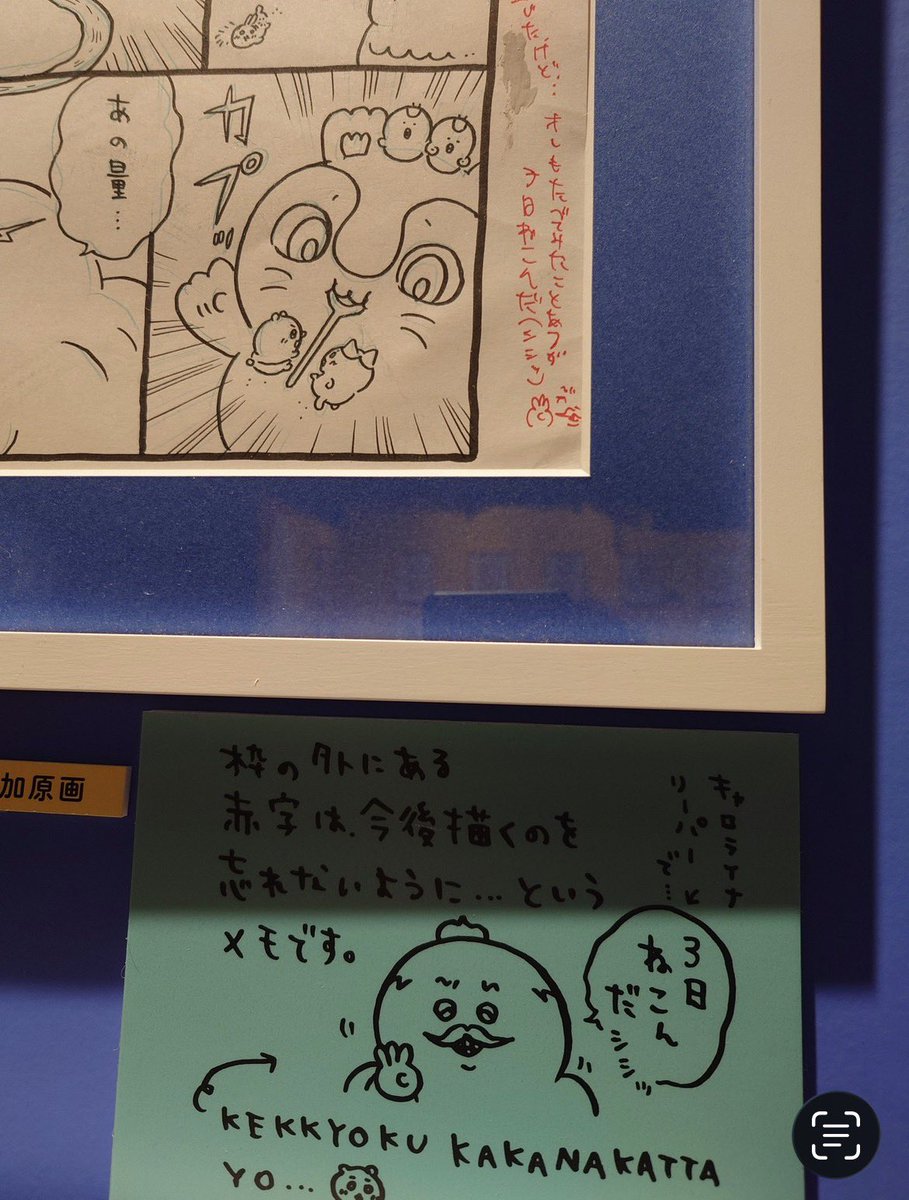 あの量…
カプッ
3日ねこんだ(シシシ)
加原画
枠の外にある
赤字は、今後描くのを
忘れないように…という
メモです。
キャロライナ
リーパーで…
3日
ねこん
だシシシッ
KEKKYOKU KAKANAKATTA
YO...